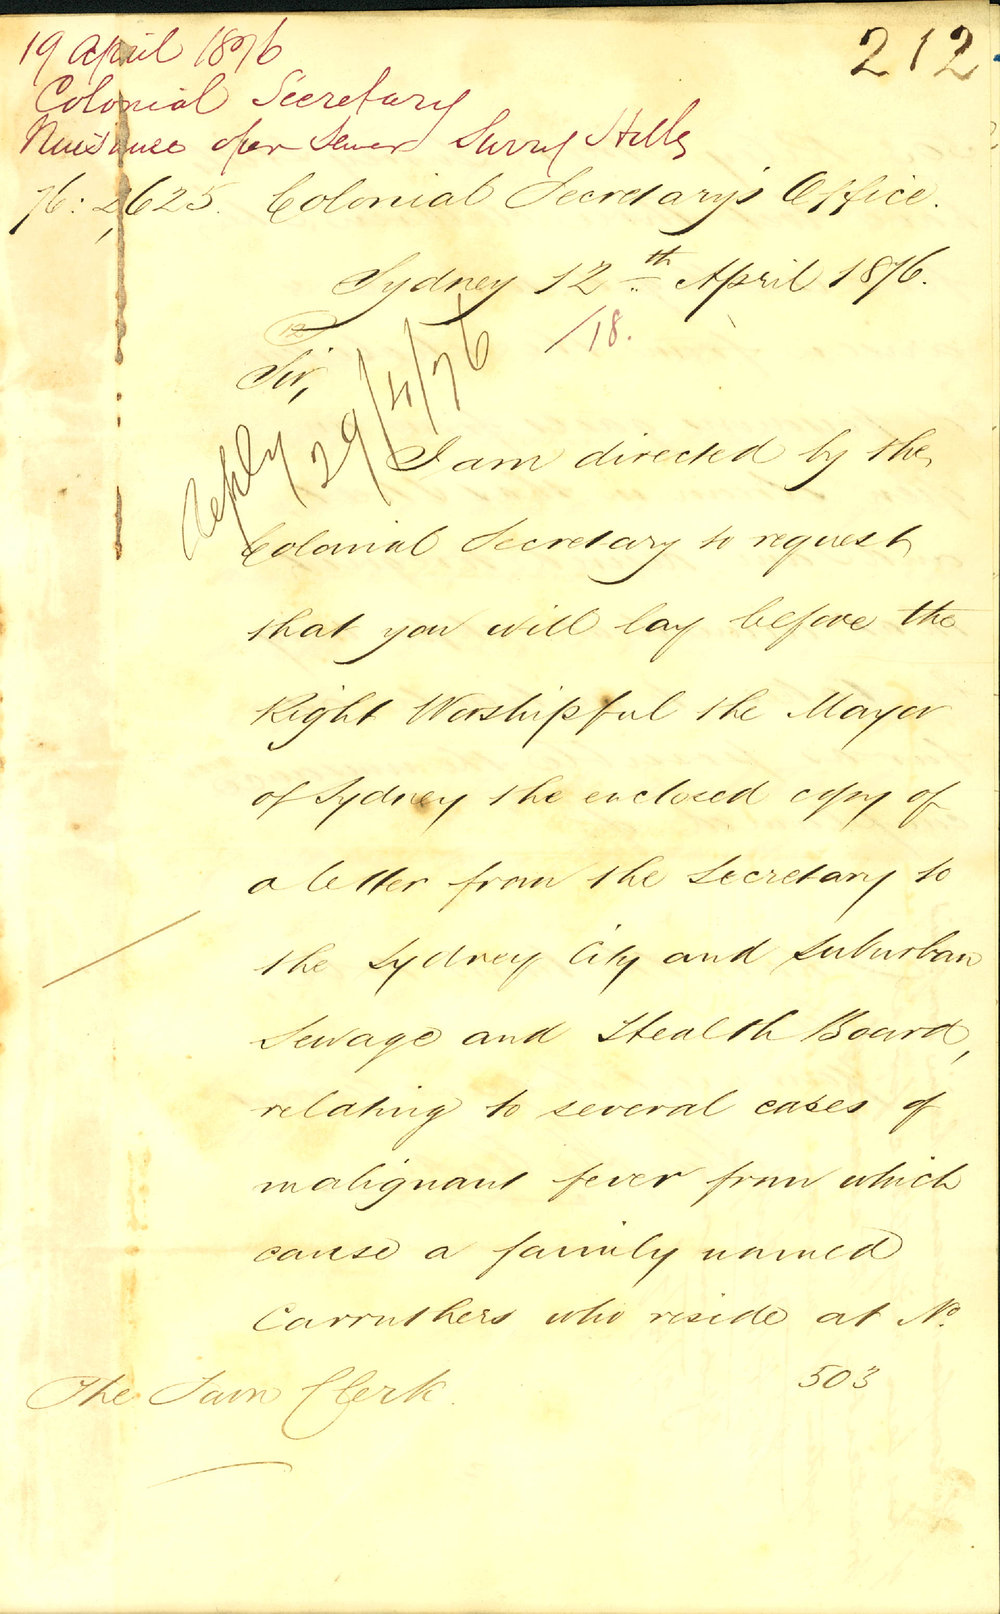 212
19 April 1876
Colonial Secretary
Nuisance open Sewer Surry Hills
76: 2625. Colonial Secretary's Office.
Sydney 12th April 1876.
/18.
Sir,
Reply 29/4/76
I am directed by the
Colonial Secretary to request
that you will lay before the
Right Worshipful the Mayor
of Sydney the enclosed copy of
a letter from the Secretary to
the Sydney City and Suburban
Sewage and Health Board,
relating to several cases of
malignant fever from which
cause a family named
Carruthers who reside at No.
503
The Town Clerk.